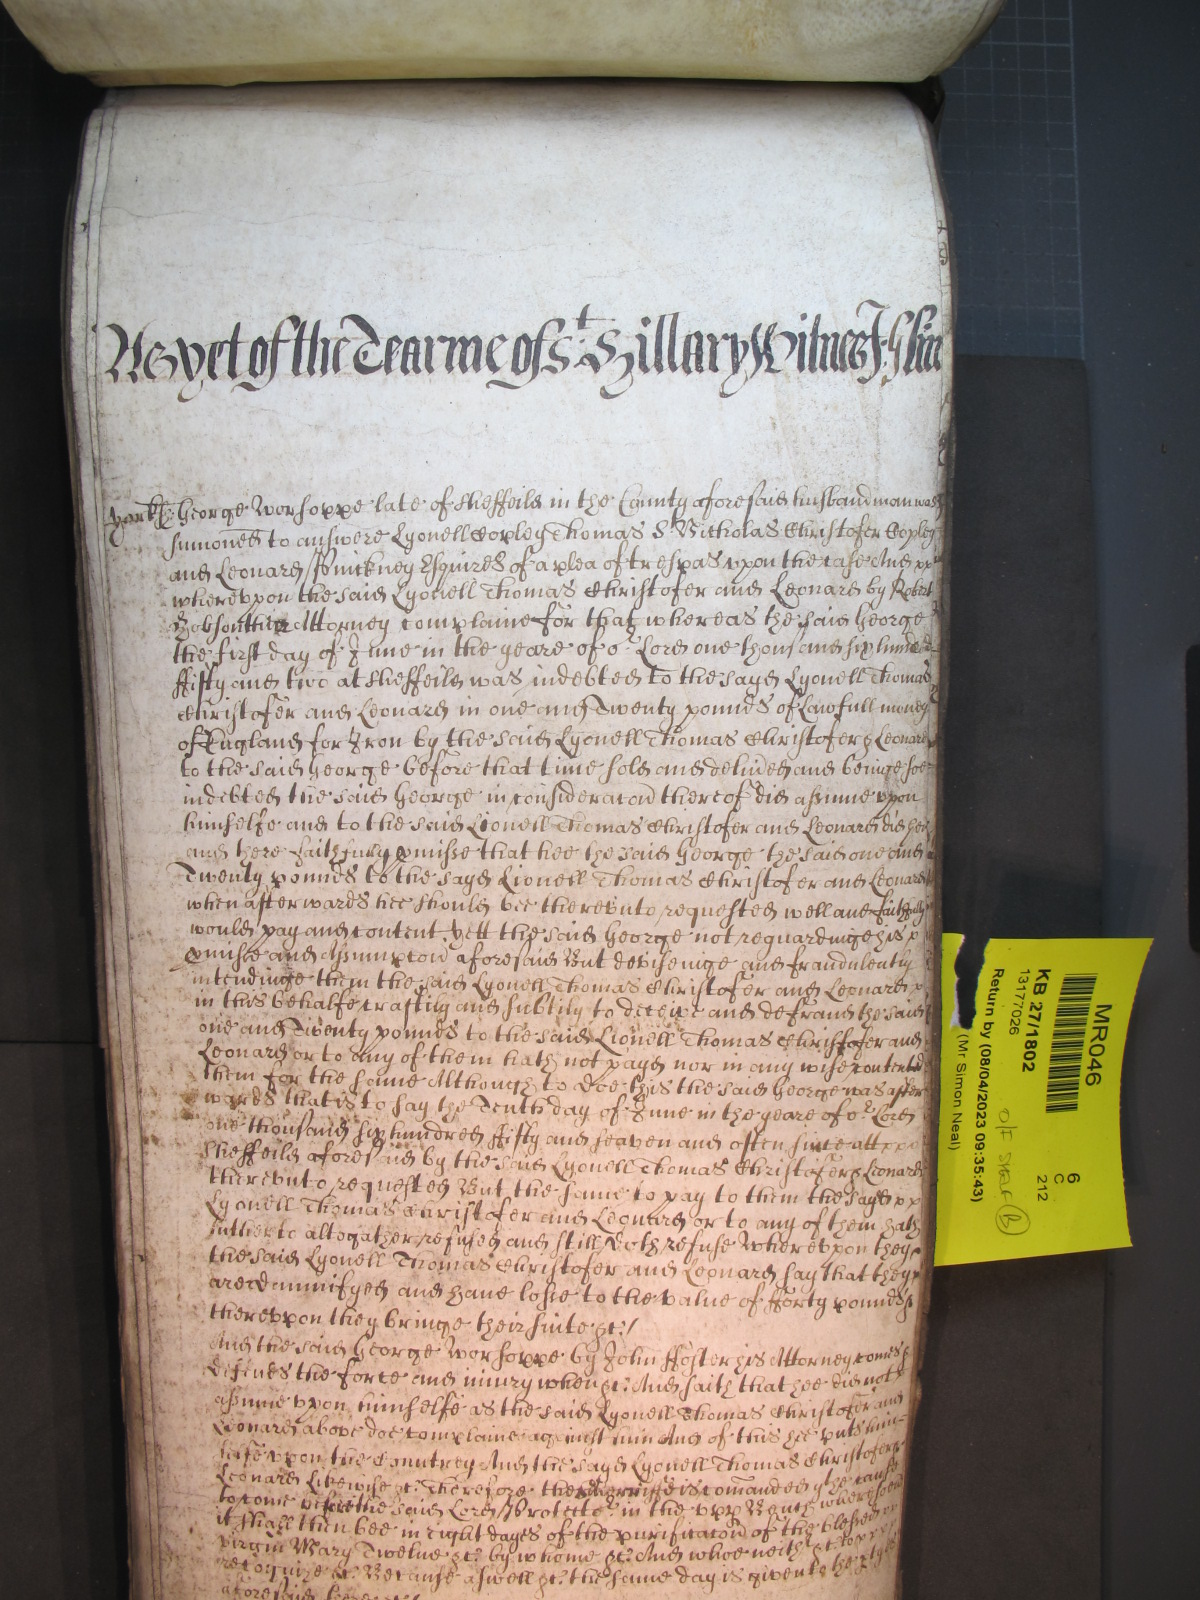 As yet of the Tearme of St Hillary Witnes J
Yorksr George Worsoppe late of Sheffeild in the County aforesaid husbandman was
sumoned to answere Lyonell Copley Thomas St Nicholas Christofer Copley
and Leonard Pinckney Esquires of a plea of trespas upon the case And
whereupon the said Lyonell Thomas Christofer and Leonard by Robert
Attorney complaine for that whereas the said George
the first day of June in the yeare of or Lord one thousand six hundred
ffifty and two at Sheffeild was indebted to the sayd Lyonell Thomas
Christofer and Leonard in one and Twenty pounds of Lawfull money
of England for Iron by the said Lyonell Thomas Christofer & Leonard
to the said George before that time sold and delived and beinge soe
indebted the said George in consideracon thereof did assume upon
himselfe and to the said Lionell Thomas Christofer and Leonard did then
and there faithfully pmisse that hee the said George the said one and
Twenty pounds to the sayd Lionell Thomas Christofer and Leonard
when afterwards hee should bee thereunto requested well and faithfully
would pay and content. Yett the said George not reguardinge his
pmisse and Assumpcon aforesaid But deviseinge and fraudulently
intendinge them the said Lyonell Thomas Christofer and Leonard
in this behalfe craftily and subtilly to deceive and defraud the said
one and Twenty pounds to the said Lionell Thomas Christofer and
Leonard or to any of them hath not payd nor in any wise contented
them for the same Although to doe this the said George was after
wards that is to say the Tenth day of June in the yeare of or Lord
one thousand six hundred ffifty and seaven and often since att
Sheffeild aforesaid by the said Lyonell Thomas Christofer & Leonard
thereunto requested But the same to pay to them the sayd
Lyonell Thomas Christofer and Leonard or to any of them hath
hitherto altogather refused and still doth refuse Whereupon they
the said Lyonell Thomas Christofer and Leonard say that they
are damnifyed and have losse to the value of fforty pounds &
thereupon they bringe their suite &c./
And the said George Worsoppe by John ffoster his Attorney comes &
defends the force and iniury when &c. And saith that hee did not
assume upon himselfe as the said Lyonell Thomas Christofer and
Leonard above doe complaine against him And of this hee puts him
selfe upon the Countrey And the sayd Lyonell Thomas Christofer &
Leonard Likewise &c. Therefore the sherriffe is comanded yt he cause
to come before the said Lord Protector in the upp Bench wheresoever
it shall then bee in eight dayes of the purificacon of the blessed
virgin Mary Twelve &c. by whome &c. And whoe neither &c. to
recognize &c. Because aswell &c. the same day is given to the ptyes
aforesaid there &c./
MR046
KB 27/1802
13177026
6
C
212
Return by (08/04/2023 09:35:43)
(Mr Simon Neal)
B